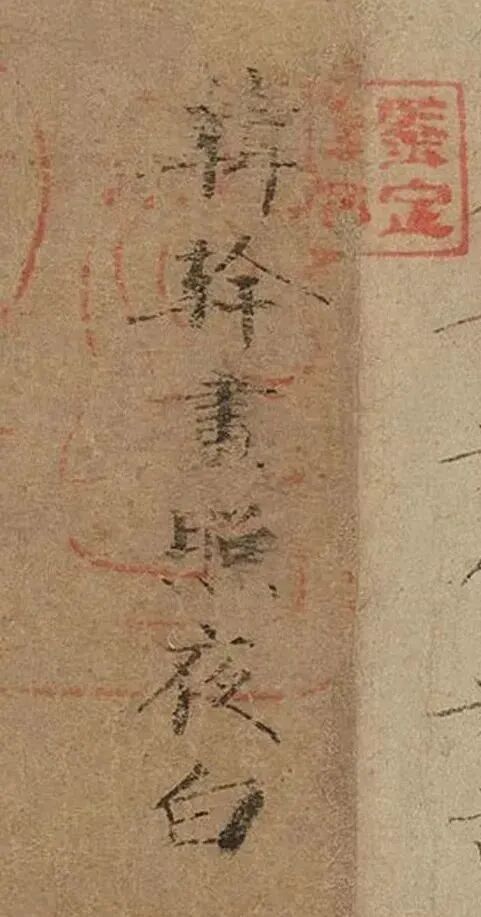 韓幹畫照夜白
鑒定